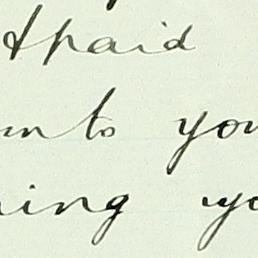 I paid
um to you
ing yo